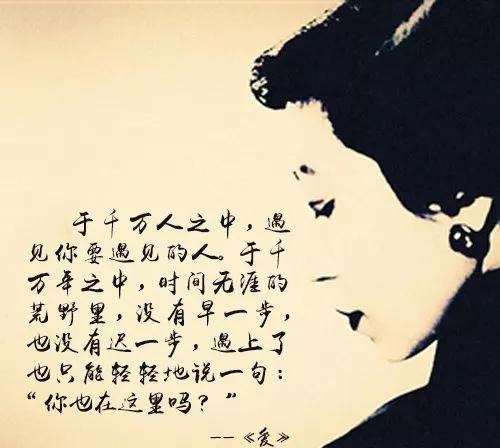 于千万人之中，遇
见你要遇见的人。于千
万年之中，时间无涯的
荒野里，没有早一步，
也没有迟一步，遇上了
也只能轻轻地说一句：
“你也在这里吗？”
--《爱》